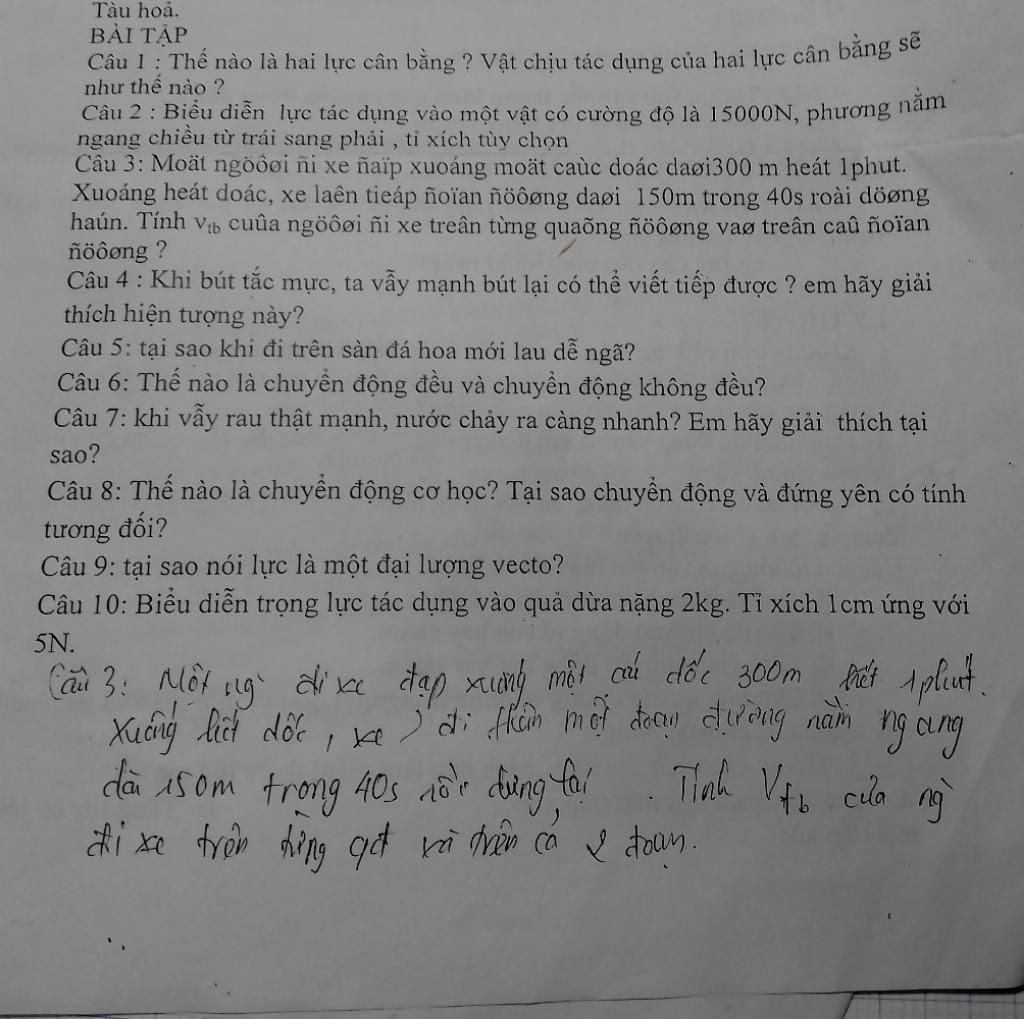 Tàu hoả.
BÀI TẬP
Câu 1 : Thế nào là hai lực cân bằng ? Vật chịu tác dụng của hai lực cân bằng sẽ
như thế nào ?
Câu 2 : Biểu diễn lực tác dụng vào một vật có cường độ là 15000N, phương nằm
ngang chiều từ trái sang phải , tỉ xích tùy chọn
Câu 3: Moät ngöôøi ñi xe ñaïp xuoáng moät caùc doác daøi300 m heát 1phut.
Xuoáng heát doác, xe laên tieáp ñoïan ñöôøng daøi 150m trong 40s roài döøng
haún. Tính vtb cuûa ngöôøi ñi xe treân từng quaõng ñöôøng vaø treân caû ñoïan
ñöôøng ?
Câu 4 : Khi bút tắc mực, ta vẫy mạnh bút lại có thể viết tiếp được ? em hãy giải
thích hiện tượng này?
Câu 5: tại sao khi đi trên sàn đá hoa mới lau dễ ngã?
Câu 6: Thế nào là chuyển động đều và chuyển động không đều?
Câu 7: khi vẫy rau thật mạnh, nước chảy ra càng nhanh? Em hãy giải thích tại
sao?
Câu 8: Thế nào là chuyển động cơ học? Tại sao chuyển động và đứng yên có tính
tương đối?
Câu 9: tại sao nói lực là một đại lượng vecto?
Câu 10: Biểu diễn trọng lực tác dụng vào quả dừa nặng 2kg. Tỉ xích 1cm ứng với
5N.
Câu 3: Một ng` đi xe đạp xuống một cái dốc 300m hết 1phút.
Xuống hết dốc, xe đi một đoạn đường nằm ngang
dài 150m trong 40s rồi dừng lại. Tính Vtb của ng`
đi xe trên từng qđ và trên cả 2 đoạn.